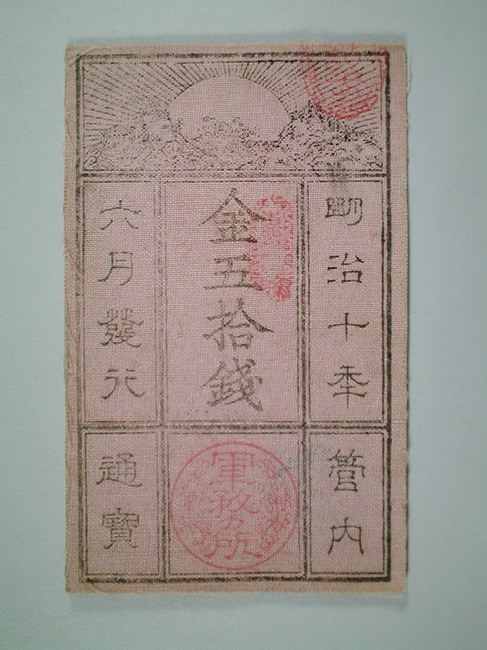 明治十年
金五拾錢
六月發行
管内
通寶
軍務所